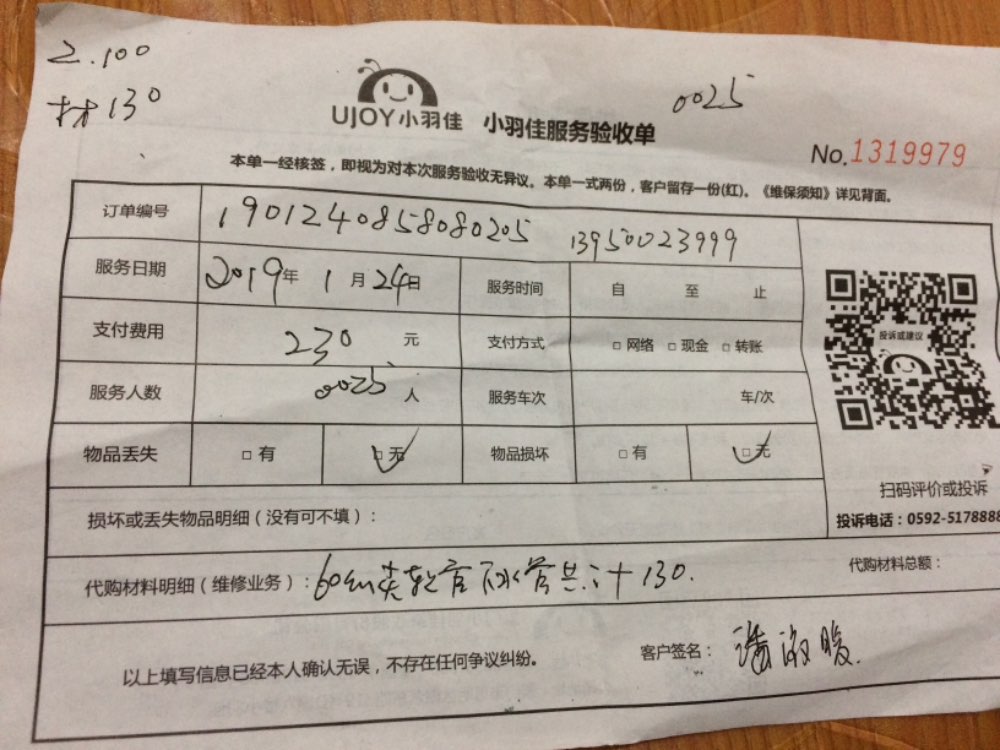 工.100
材130
UJOY小羽佳 小羽佳服务验收单
0025
No.1319979
本单一经核签，即视为对本次服务验收无异议。本单一式两份，客户留存一份(红)。《维保须知》详见背面。
订单编号 1901240858080205 13950023999
服务日期 2019年 1月24日 服务时间 自 至 止
支付费用 230 元 支付方式 □网络 □现金 □转账
服务人数 0025 人 服务车次 车/次
物品丢失 □有 □无 物品损坏 □有 □无
投诉或建议
扫码评价或投诉
投诉电话：0592-5178888
损坏或丢失物品明细（没有可不填）：
代购材料明细（维修业务）：60cm 软管 下水管共计130.
代购材料总额：
以上填写信息已经本人确认无误，不存在任何争议纠纷。
客户签名：潘淑暖